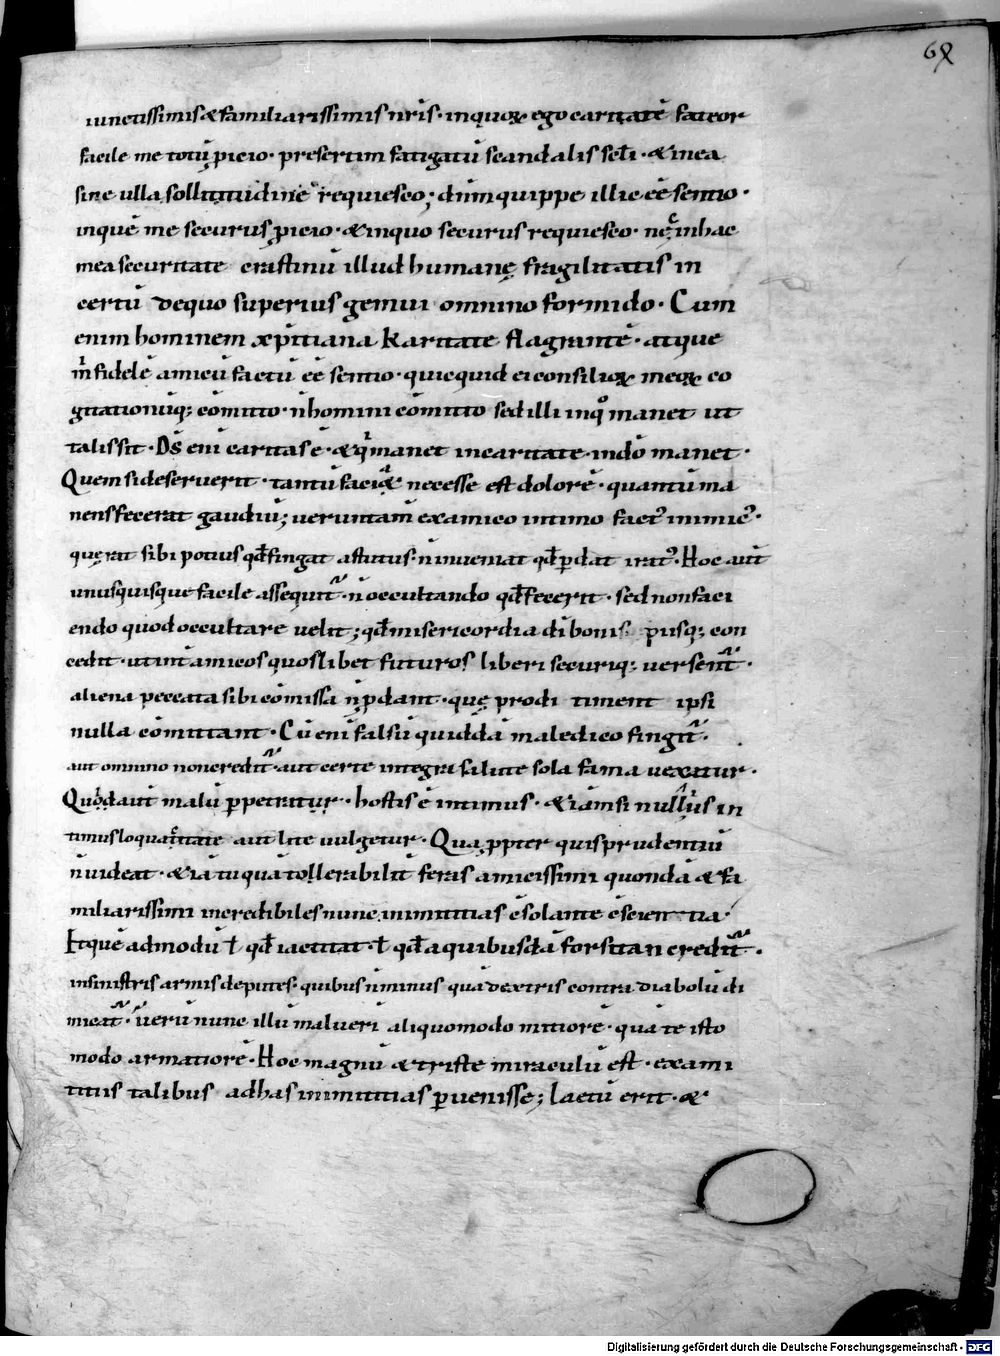 69
iunctissimis & familiarissimis nr̄is · in quoꝝ ego caritatē fateor
facile me totū ꝓicio · presertim fatigatū scandalis scl̄i · & in ea
sine ulla sollicitudine requiesco; dm̄ quippe illic eē sentio ·
in quē me securus ꝓicio · & in quo securus requiesco · nec in hac
mea securitate crastinū illud humanę fragilitatis in
certū de quo superius gemui omnino formido · Cum
enim hominem xp̄itiana karitate flagrantē · atque
m̄ fidelē amicū factū eē sentio · quicquid ei consilioꝝ meoꝝ co
gitationūq; cōmitto · n̄ homini cōmitto sed illi in qͦ manet ut
talis sit · Ds̄ eni caritas ē · & qͥ manet in caritate · in dō manet ·
Quem si deseruerit · tantū faciat necesse est dolorē · quantū ma
nens fecerat gaudiū; uerunt̄am ex amico intimo fact᾿ inimic᾿ ·
quęrat sibi potius qd̄ fingat astutus · n̄ inueniat qd̄ ꝓdat irat᾿ · Hoc aut̄
unusquisque facile assequit̄ · n̄ occultando qd̄ fecerit · sed non faci
endo quod occultare uelit; qd̄ misericordia di bonis piisq; con
cedit · ut int̄ amicos quoslibet futuros liberi securiq; uersent̄ ·
aliena peccata sibi cōmissa n̄ ꝓdant · quę prodi timent ipsi
nulla cōmittant · Cū enī falsū quiddā maledico fingit̄ ·
aut omnino non credit̄ · aut certe integra salute sola fama uexatur ·
Quod aut̄ malū ꝑpetratur · hostis ē intimus · & iāmsi nullius in
timus loquacitate aut lite uulgetur · Qua ꝓpter quis prudentiū
n̄ uideat · & iā tu quā tollerabilit̄ feras amicissimi quondā & fa
miliarissimi incredibiles nunc inimicitias c̄solante c̄scientia ·
Et quē admodū ł qd̄ iactitat · ł qd̄ a quibusdā forsitan credit̄ ·
in sinistris armis deputes · quibus n̄ minus quā dextris contra diabolū di
micat̄ · Uerū nunc illū maluerī aliquo modo mitiorē · quā te isto
modo armatiorē · Hoc magnū & triste miraculū est · ex ami
titiis talibus ad has inimititias ꝑuenisse; laetū erit · &
Digitalisierung gefördert durch die Deutsche Forschungsgemeinschaft - DFG